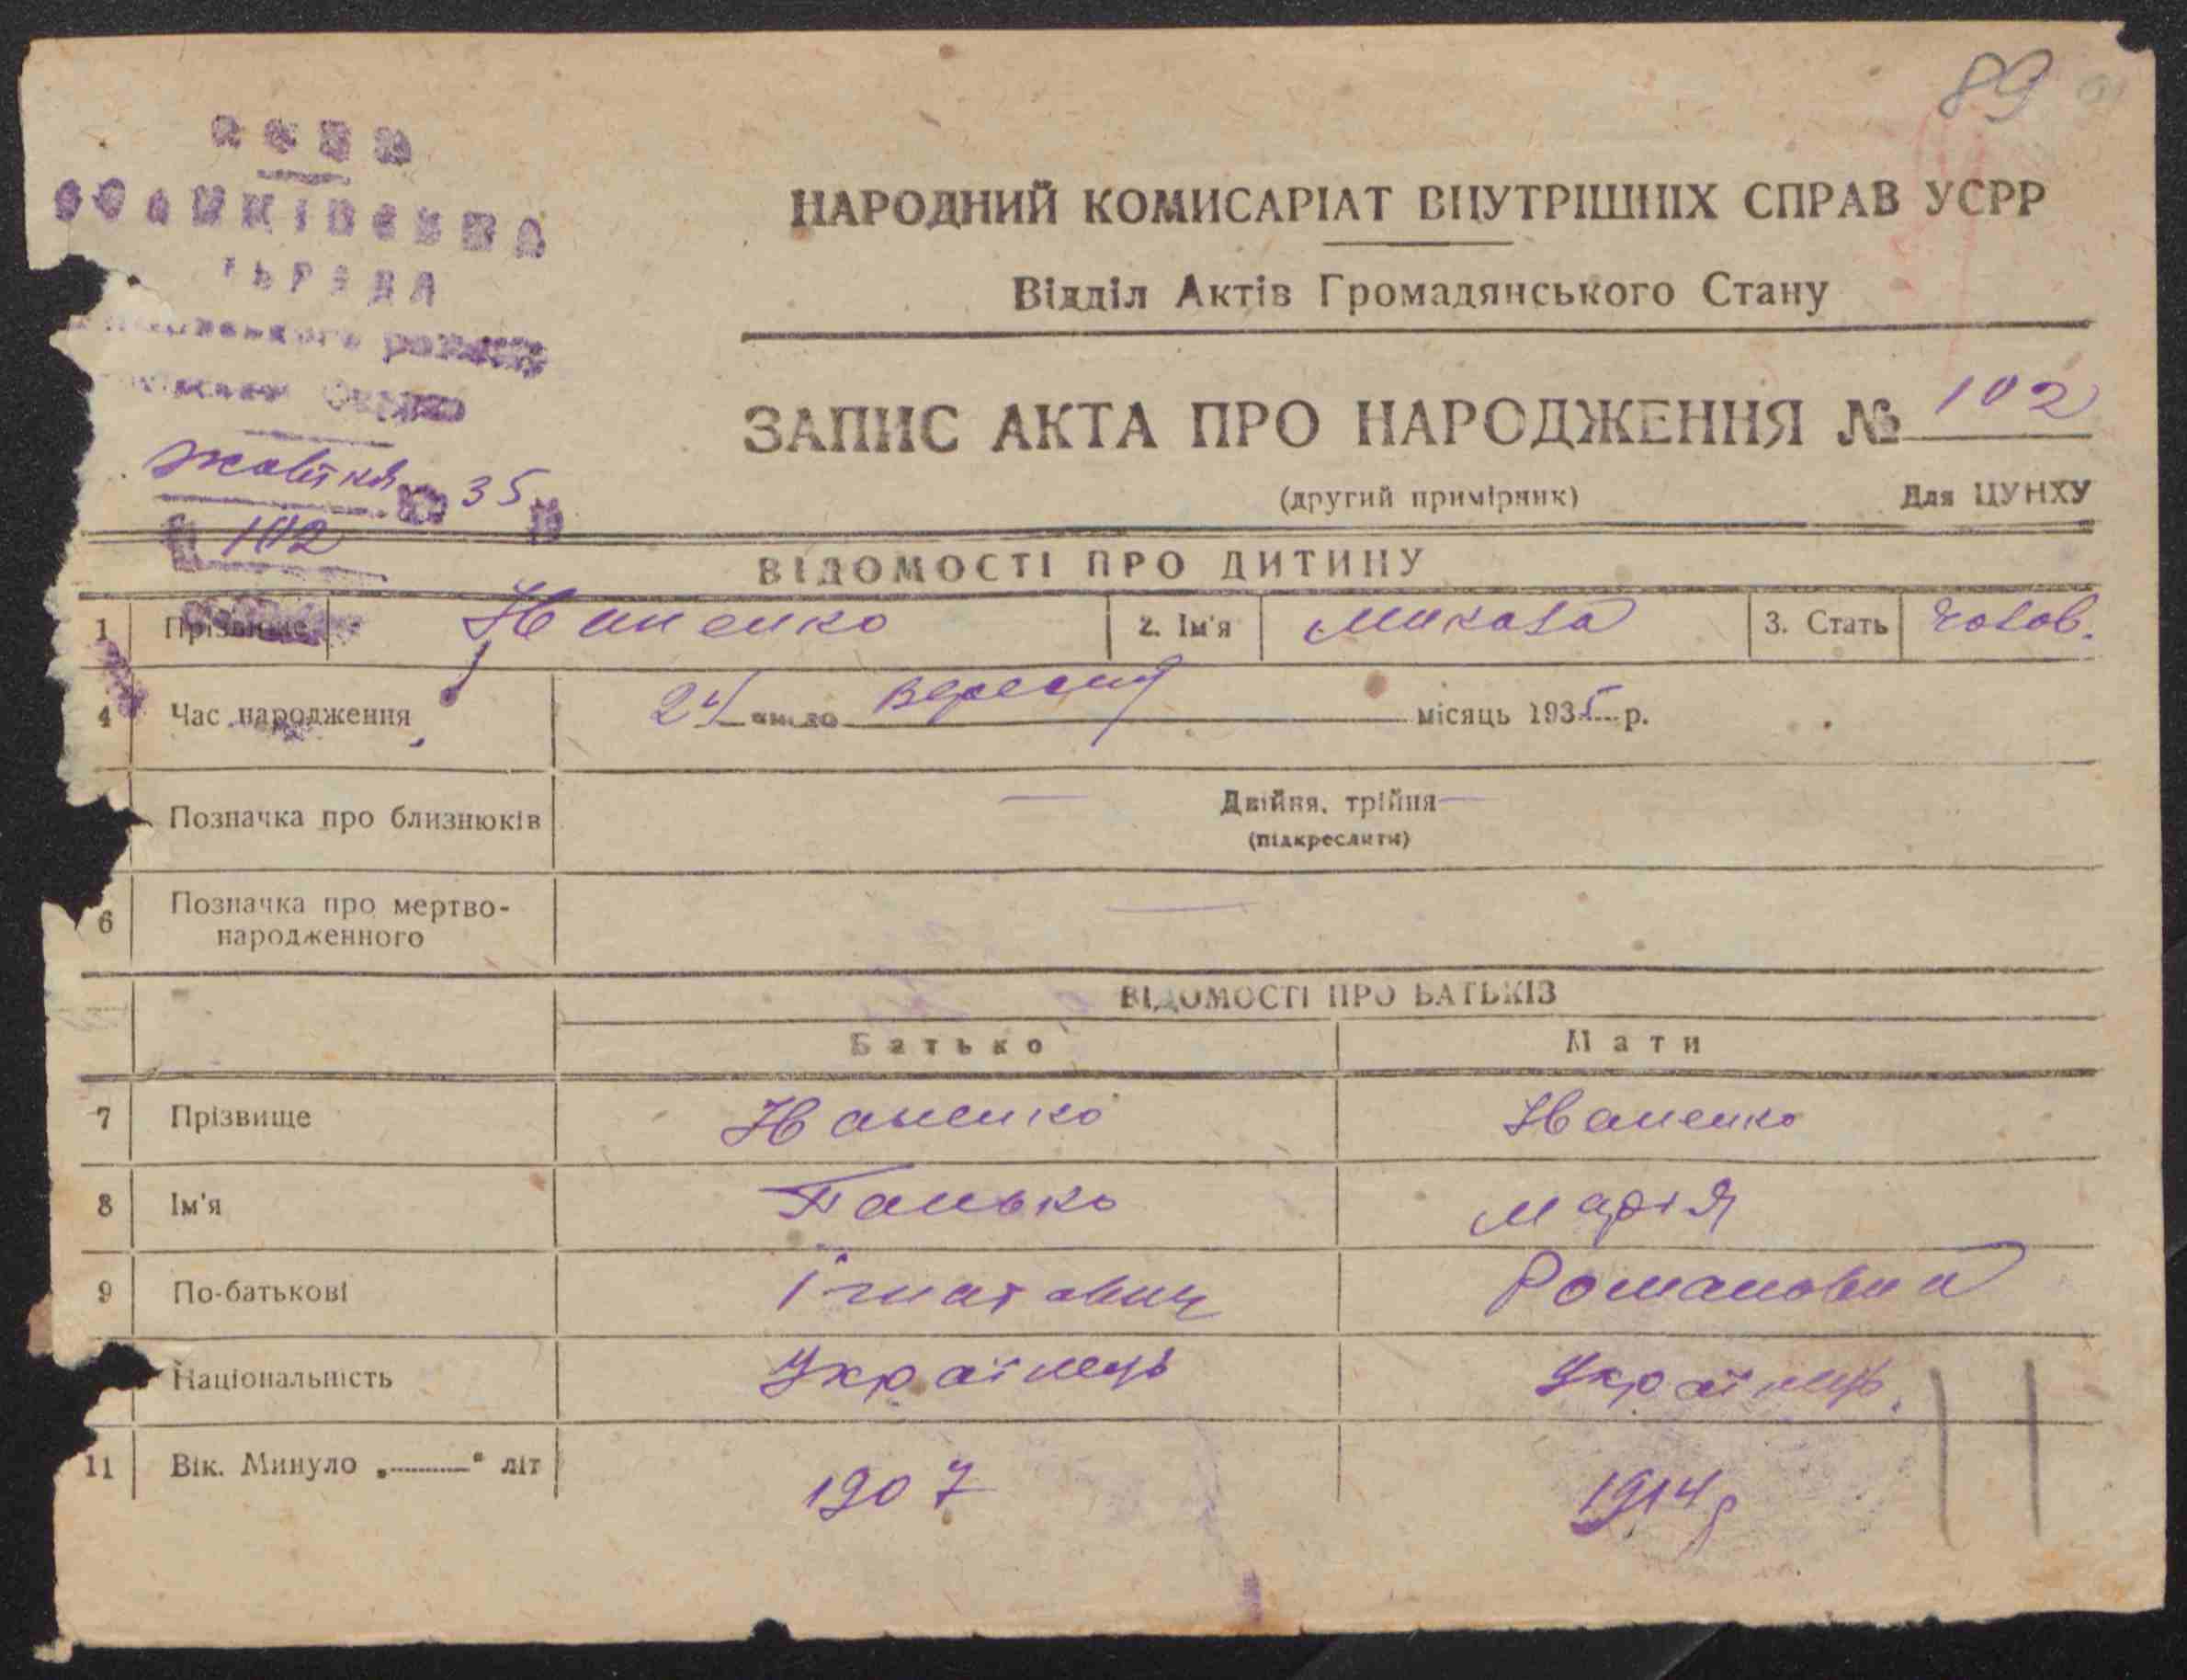 89
УСРР
ЬРАДА
жовтня 35
102
НАРОДНИЙ КОМИСАРІАТ ВНУТРІШНІХ СПРАВ УСРР
Відділ Актів Громадянського Стану
ЗАПИС АКТА ПРО НАРОДЖЕННЯ № 102
(другий примірник) Для ЦУНХУ
ВІДОМОСТІ ПРО ДИТИНУ
1 Прізвище Іваненко 2. Ім'я Микола 3. Стать чолов.
4 Час народження 24 число вересня місяць 1935 р.
Позначка про близнюків Двійня, трійня
(підкреслити)
6 Позначка про мертво-
народженного
ВІДОМОСТІ ПРО БАТЬКІВ
Батько Мати
7 Прізвище Іваненко Іваненко
8 Ім'я Панько Марія
9 По-батькові Ігнатович Романовна
Національність Українець Українець.
11 Вік. Минуло „......" літ 1907 1914 р